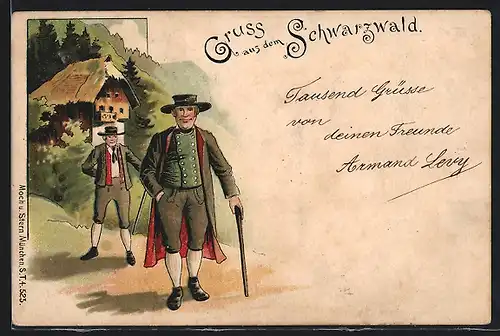 Gruss
aus dem
Schwarzwald.
Tausend Grüsse
von
deinen Freunde
Armand Levy
Moch u. Stern München. S.T.4. 525.